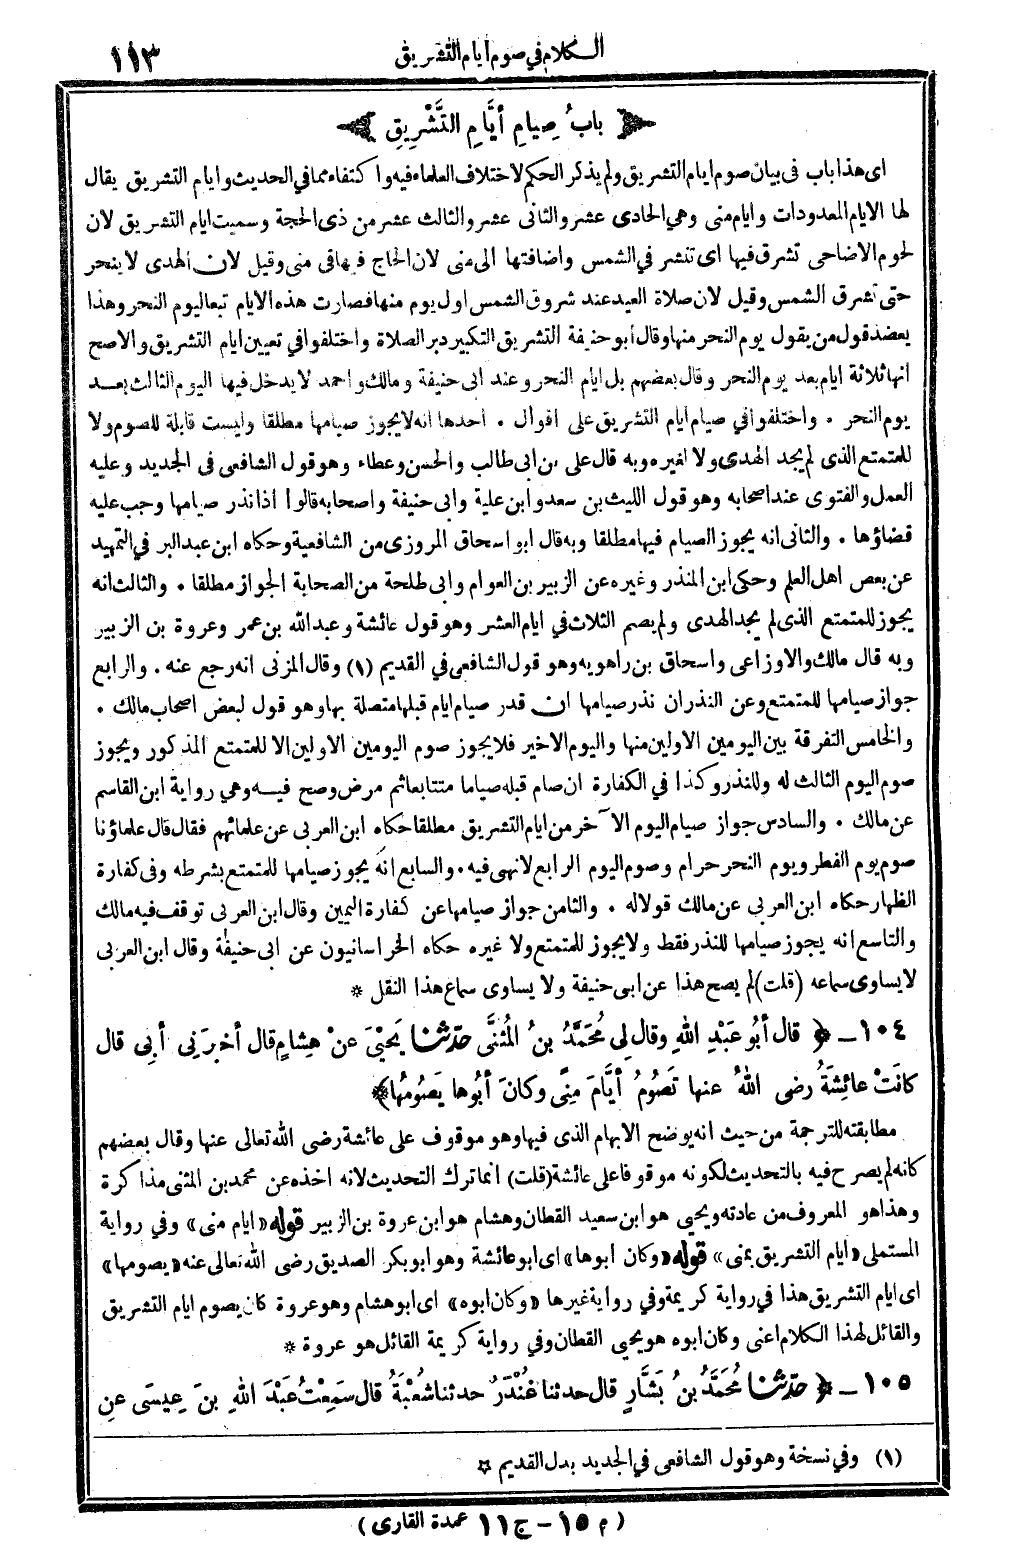 الكلام في صوم أيام التشريق
١١٣
باب صِيامِ أيَّامِ التَّشْرِيقِ
اى هذا باب فى بيان صوم ايام التشريق ولم يذكر الحكم لاختلاف العلماء فيه واكتفاء بما في الحديث وايام التشريق يقال
لها الايام المعدودات وايام منى وهي الحادى عشر والثانى عشر والثالث عشر من ذى الحجة وسميت ايام التشريق لان
لحوم الاضاحى تشرق فيها اى تنشر في الشمس واضافتها الى منى لان الحاج فيها فى منى وقيل لان الهدى لا ينحر
حتى تشرق الشمس وقيل لان صلاة العيد عند شروق الشمس اول يوم منها فصارت هذه الايام تبعا ليوم النحر وهذا
يعضد قول من يقول يوم النحر منها وقال أبو حنيفة التشريق التكبير دبر الصلاة واختلفوا في تعيين ايام التشريق والاصح
أنها ثلاثة ايام بعد يوم النحر وقال بعضهم بل ايام النحر وعند ابى حنيفة ومالك واحمد لا يدخل فيها اليوم الثالث بعد
يوم النحر . واختلفوا في صيام ايام التشريق على اقوال . احدها انه لا يجوز صيامها مطلقا وليست قابلة للصوم ولا
للمتمتع الذى لم يجد الهدى ولا لغيره وبه قال على بن ابى طالب والحسن وعطاء وهو قول الشافعى فى الجديد وعليه
العمل والفتوى عند اصحابه وهو قول الليث بن سعد وابن علية وابى حنيفة واصحابه قالوا اذا نذر صيامها وجب عليه
قضاؤها . والثانى انه يجوز الصيام فيها مطلقا وبه قال ابو اسحاق المروزى من الشافعية وحكاه ابن عبد البر في التمهيد
عن بعض اهل العلم وحكى ابن المنذر وغيره عن الزبير بن العوام وابى طلحة من الصحابة الجواز مطلقا . والثالث انه
يجوز للمتمتع الذى لم يجد الهدى ولم يصم الثلاث في ايام العشر وهو قول عائشة وعبد الله بن عمر وعروة بن الزبير
وبه قال مالك والاوزاعى واسحاق بن راهويه وهو قول الشافعى في القديم (١) وقال المزنى انه رجع عنه . والرابع
جواز صيامها للمتمتع وعن النذر ان نذر صيامها ان قدر صيام ايام قبلها متصلة بها وهو قول لبعض اصحاب مالك .
والخامس التفرقة بين اليومين الاولين منها واليوم الاخير فلا يجوز صوم اليومين الاولين الا للمتمتع المذكور ويجوز
صوم اليوم الثالث له وللنذر وكذا في الكفارة ان صام قبله صياما متتابعا ثم مرض وصح فيه وهي رواية ابن القاسم
عن مالك . والسادس جواز صيام اليوم الآخر من ايام التشريق مطلقا حكاه ابن العربى عن علمائهم فقال قال علماؤنا
صوم يوم الفطر ويوم النحر حرام وصوم اليوم الرابع لا نهى فيه . والسابع انه يجوز صيامها للمتمتع بشرطه وفى كفارة
الظهار حكاه ابن العربي عن مالك قولا له . والثامن جواز صيامها عن كفارة اليمين وقال ابن العربى توقف فيه مالك
والتاسع انه يجوز صيامها للنذر فقط ولا يجوز للمتمتع ولا غيره حكاه الخراسانيون عن ابى حنيفة وقال ابن العربى
لا يساوى سماعه (قلت) لم يصح هذا عن ابى حنيفة ولا يساوى سماع هذا النقل *
١٠٤ ـ ﴿ قال أبُو عَبْدِ اللهِ وقال لِي مُحَمَّدُ بنُ المُثَنَّى حدّثنا يَحْيَى عنْ هِشامٍ قال أخبرَنِى أبِى قال
كانَتْ عائِشَةُ رضى اللهُ عنها تَصُومُ أيَّامَ مِنًى وكانَ أبُوها يَصُومُها ﴾
مطابقته للترجمة من حيث انه يوضح الابهام الذى فيها وهو موقوف على عائشة رضى الله تعالى عنها وقال بعضهم
كانه لم يصرح فيه بالتحديث لكونه موقوفا على عائشة (قلت) انما ترك التحديث لانه اخذه عن محمد بن المثنى مذاكرة
وهذا هو المعروف من عادته ويحيى هو ابن سعيد القطان وهشام هو ابن عروة بن الزبير قوله «ايام منى» وفي رواية
المستملى «أيام التشريق بمنى» قوله «وكان ابوها» اى ابو عائشة وهو ابو بكر الصديق رضى الله تعالى عنه «يصومها»
اى ايام التشريق هذا في رواية كريمة وفي رواية غيرها «وكان ابوه» اى ابو هشام وهو عروة كان يصوم ايام التشريق
والقائل لهذا الكلام اعنى وكان ابوه هو يحيى القطان وفي رواية كريمة القائل هو عروة *
١٠٥ ـ ﴿ حدّثنا مُحَمَّدُ بنُ بَشَّارٍ قال حدثنا غُنْدَرٌ حدثنا شُعْبَةُ قال سَمِعْتُ عَبْدَ اللهِ بنَ عِيسَى عنِ
(١) وفي نسخة وهو قول الشافعى في الجديد بدل القديم *
(م ١٥ ـ ج ١١ عمدة القارى)